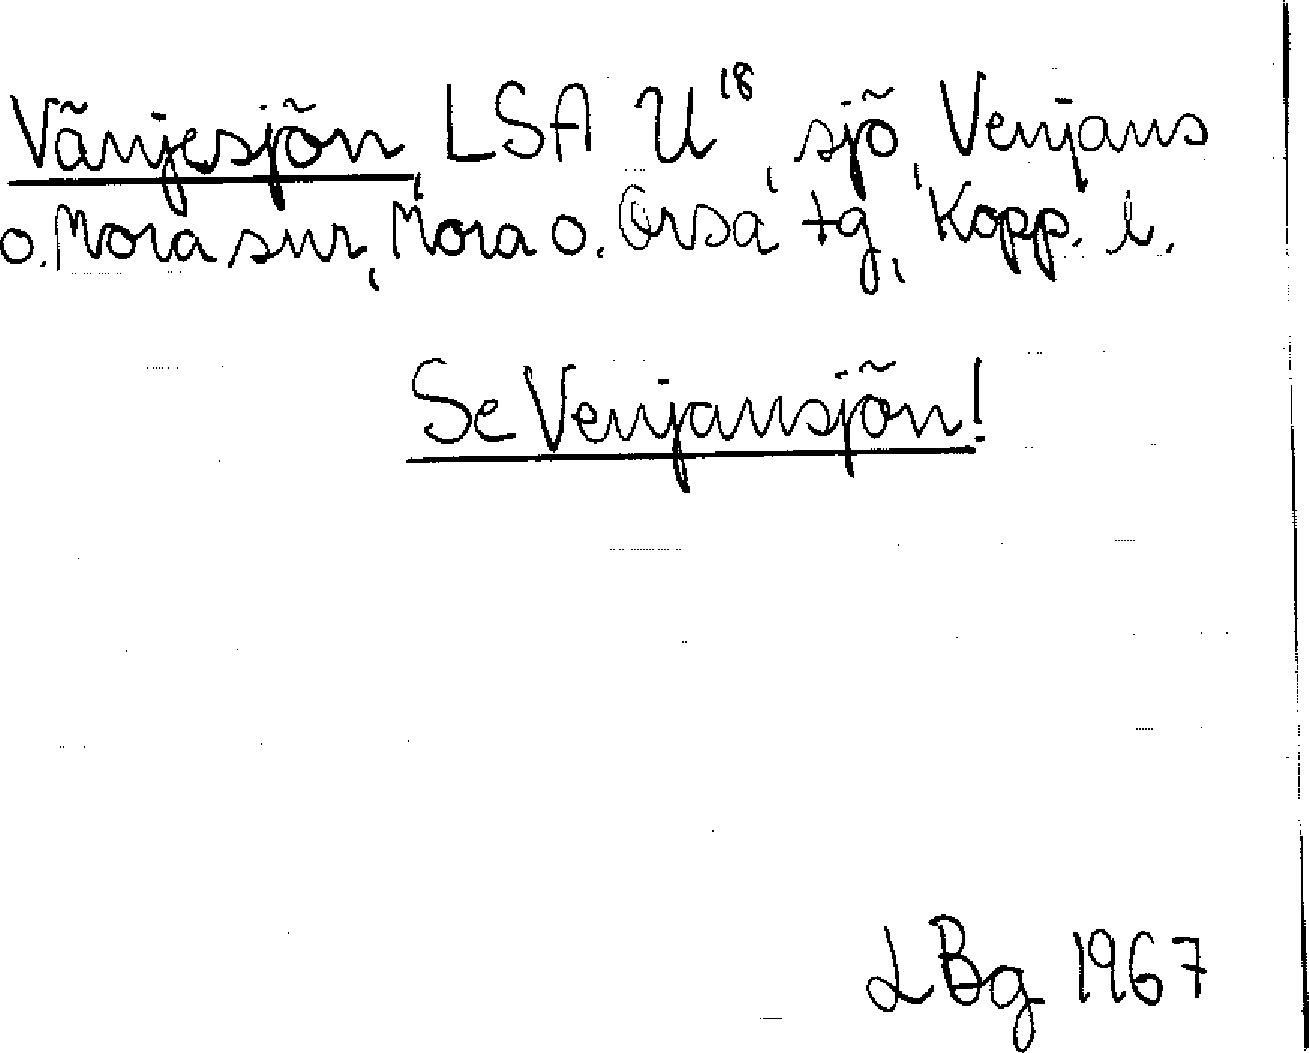 Vänjesjön, LSA U¹⁸, sjö, Venjans
o. Mora snr, Mora o. Orsa tg, Kopp. l.
Se Venjansjön!
LBg 1967